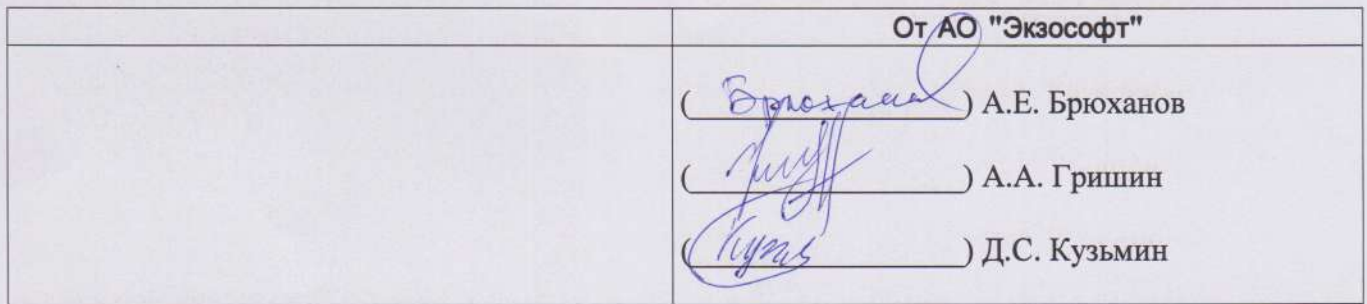 От АО "Экзософт"
( Брюханов ) А.Е. Брюханов
( ) А.А. Гришин
( ) Д.С. Кузьмин